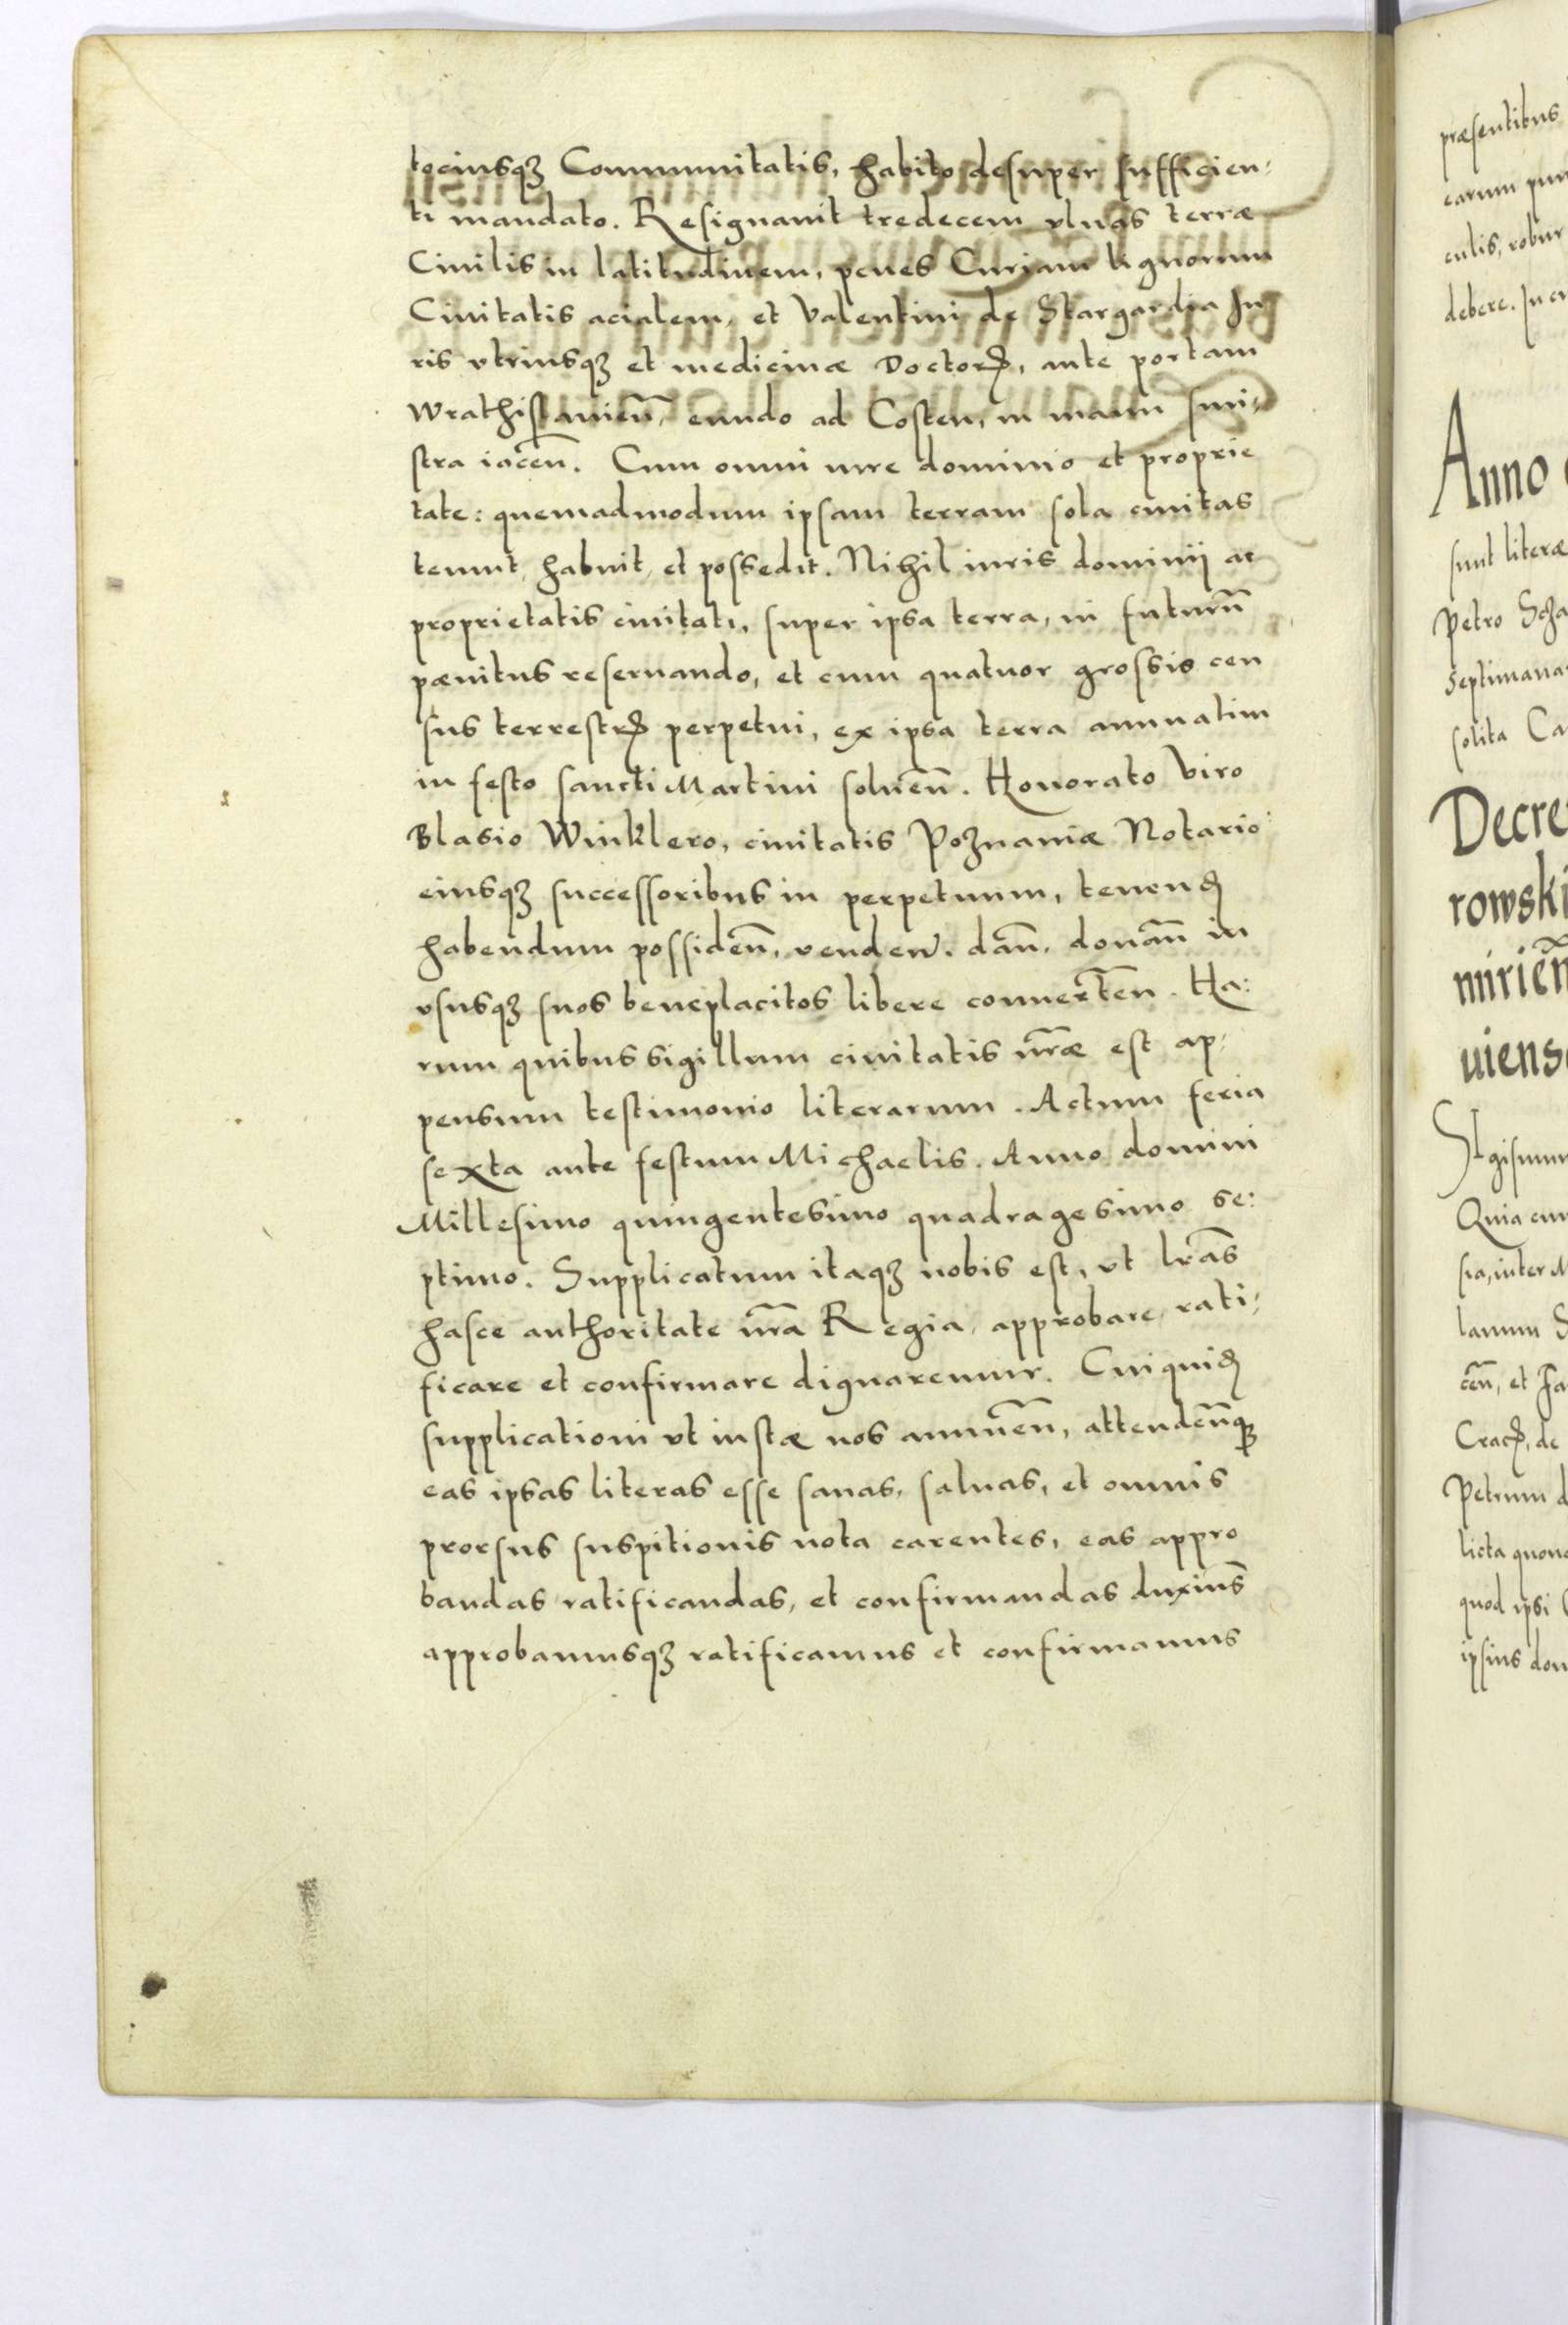 tociusqꝫ Communitatis, habito desuper sufficien⸗
ti mandato. Resignauit tredecem vlnas terræ
Ciuilis in latitudinem, penes Curiam lignorum
Ciuitatis acialem, et Valentini de Stargardia Iu
ris vtriusqꝫ et medicinæ Doctorꝭ, ante portam
Wrathislauien̄, eundo ad Costen, in manu sini⸗
stra iacen̄. Cum omni iure dominio et proprie
tate: quemadmodum ipsam terram sola ciuitas
tenuit, habuit, et possedit. Nihil iuris dominij ac
proprietatis ciuitati, super ipsa terra, in futurū
pænitus reseruando, et cum quatuor grossis cen
sus terrestrꝭ perpetui, ex ipsa terra annuatim
in festo sancti Martini soluen̄. Honorato Viro
Blasio Winklero, ciuitatis Poznaniæ Notario
eiusqꝫ successoribus in perpetuum, tenendꝭ
habendum possiden̄, venden̄. dan̄. donan̄ in
vsusqꝫ suos beneplacitos libere conuerten̄. Ha:
rum quibus sigillum ciuitatis nr̄æ est ap⸗
pensum testimonio literarum. Actum feria
sexta ante festum Michaelis. Anno domini
Millesimo quingentesimo quadragesimo se:
ptimo. Supplicatum itaqꝫ nobis est, vt lr̄as
hasce authoritate nr̄a Regia, approbare, rati⸗
ficare et confirmare dignaremur. Cui quidꝭ
supplicationi vt iustæ nos annuen̄, attenden̄qꝫ
eas ipsas literas esse sanas, saluas, et omnis
prorsus suspitionis nota carentes, eas appro
bandas ratificandas, et confirmandas duxim̄s
approbamusqꝫ ratificamus et confirmamus
præsentibus
earum
culis, robur
debere. In
Anno
sunt literæ
Petro
Septimana
solita
Decre
rowski
mirien̄
uiens
Sigismun
Quia cum
sia, inter
lanum
cen̄, et
Cracꝭ, de
Petrum
licta
quod ipsi
ipsius